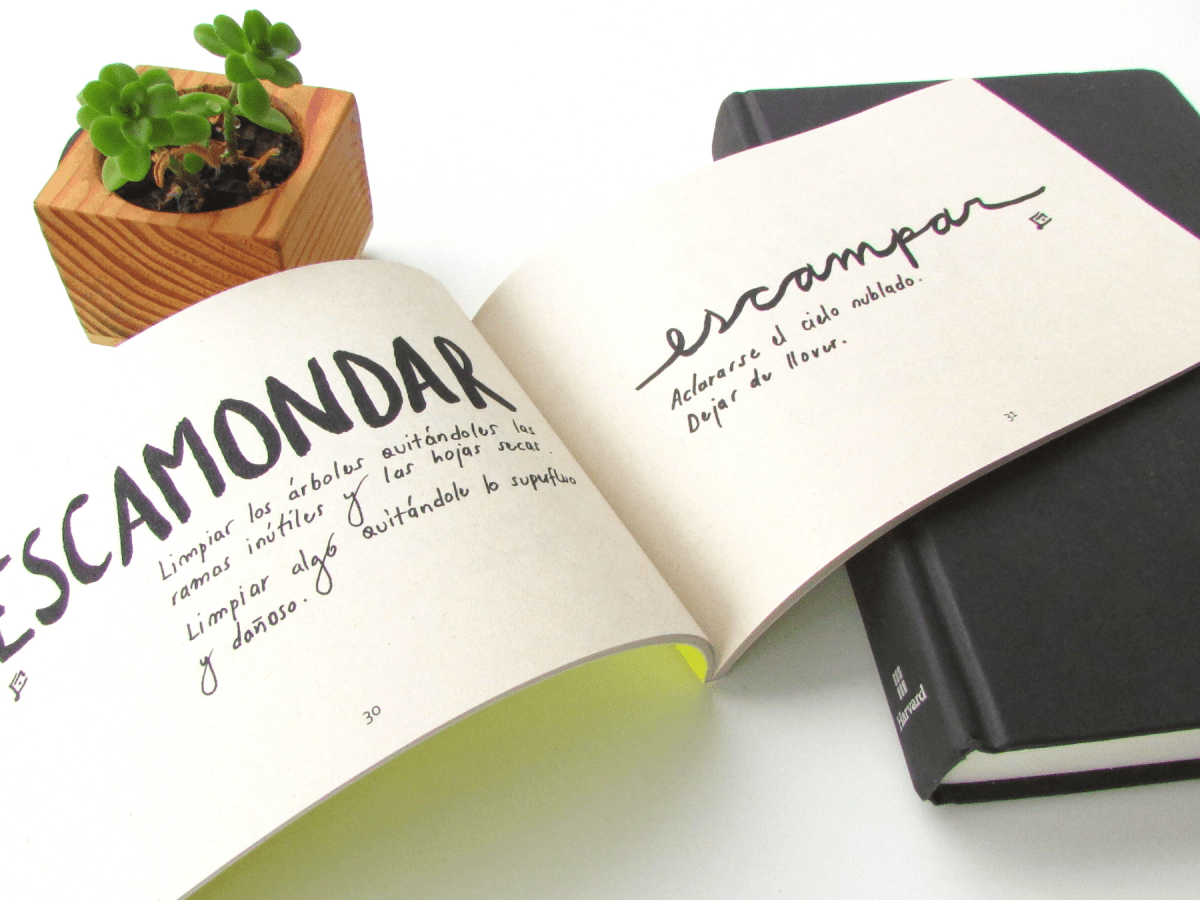 ESCAMONDAR
Limpiar los árboles quitándoles las
ramas inútiles y las hojas secas.
Limpiar algo quitándole lo supufluo
y dañoso.
30
escampar
Aclararse el cielo nublado.
Dejar de llover.
31
Harvard